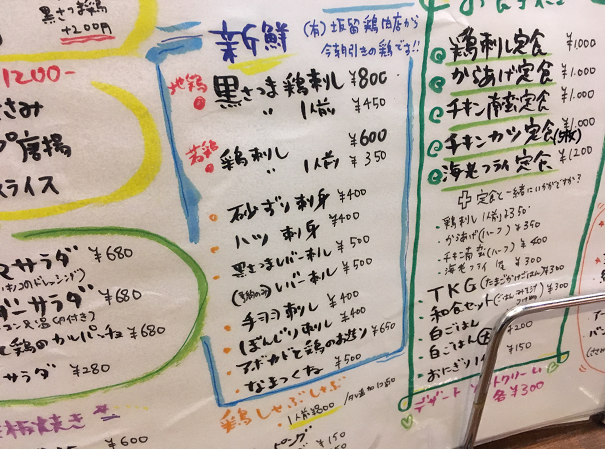 黒さつま鶏
+200円
1200-
さみ
唐揚
スライス
サラダ ¥680
サラダ ¥680
鶏のカルパーチョ ¥680
サラダ ¥280
¥600
新鮮
(有)坂留鶏肉店から
今朝引きの鶏です!!
地鶏
黒さつま鶏刺し ¥800
〃 1人前 ¥450
若鶏
鶏刺し ¥600
〃 1人前 ¥350
砂ずり刺身 ¥400
ハツ刺身 ¥400
黒さつまレバー刺し ¥500
レバー刺し ¥500
手羽刺し ¥400
ぼんじり刺し ¥400
アボカドと鶏のお造り ¥650
なまつくね ¥500
鶏しゃぶしゃぶ
1人前¥800
¥150
鶏刺し定食 ¥1,000
からあげ定食 ¥1,000
チキン南蛮定食 ¥1,000
チキンカツ定食 ¥1,000
海老フライ定食 ¥1200
定食と一緒にいかがですか?
鶏刺し 1人前 ¥350
からあげ(ハーフ) ¥350
チキン南蛮(ハーフ) ¥400
海老フライ ¥300
TKG(たまごかけごはん) ¥300
和合セット ¥300
白ごはん ¥200
白ごはん 大
おにぎり ¥150
デザート ソフトクリーム
各¥300